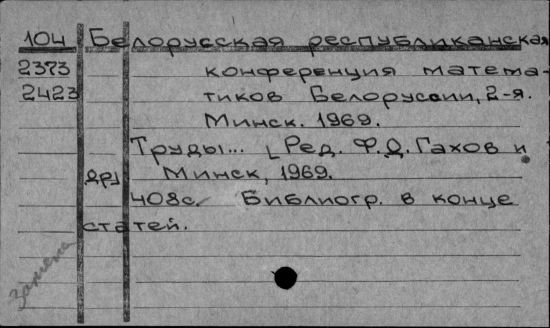 104 Белорусская республиканская
2373 конференция матема-
2423 тиков Белоруссии, 2-я.
Минск. 1969.
Труды... [Ред. Ф.Д. Гахов и
др] Минск, 1969.
408с. Библиогр. в конце
статей.
Замена